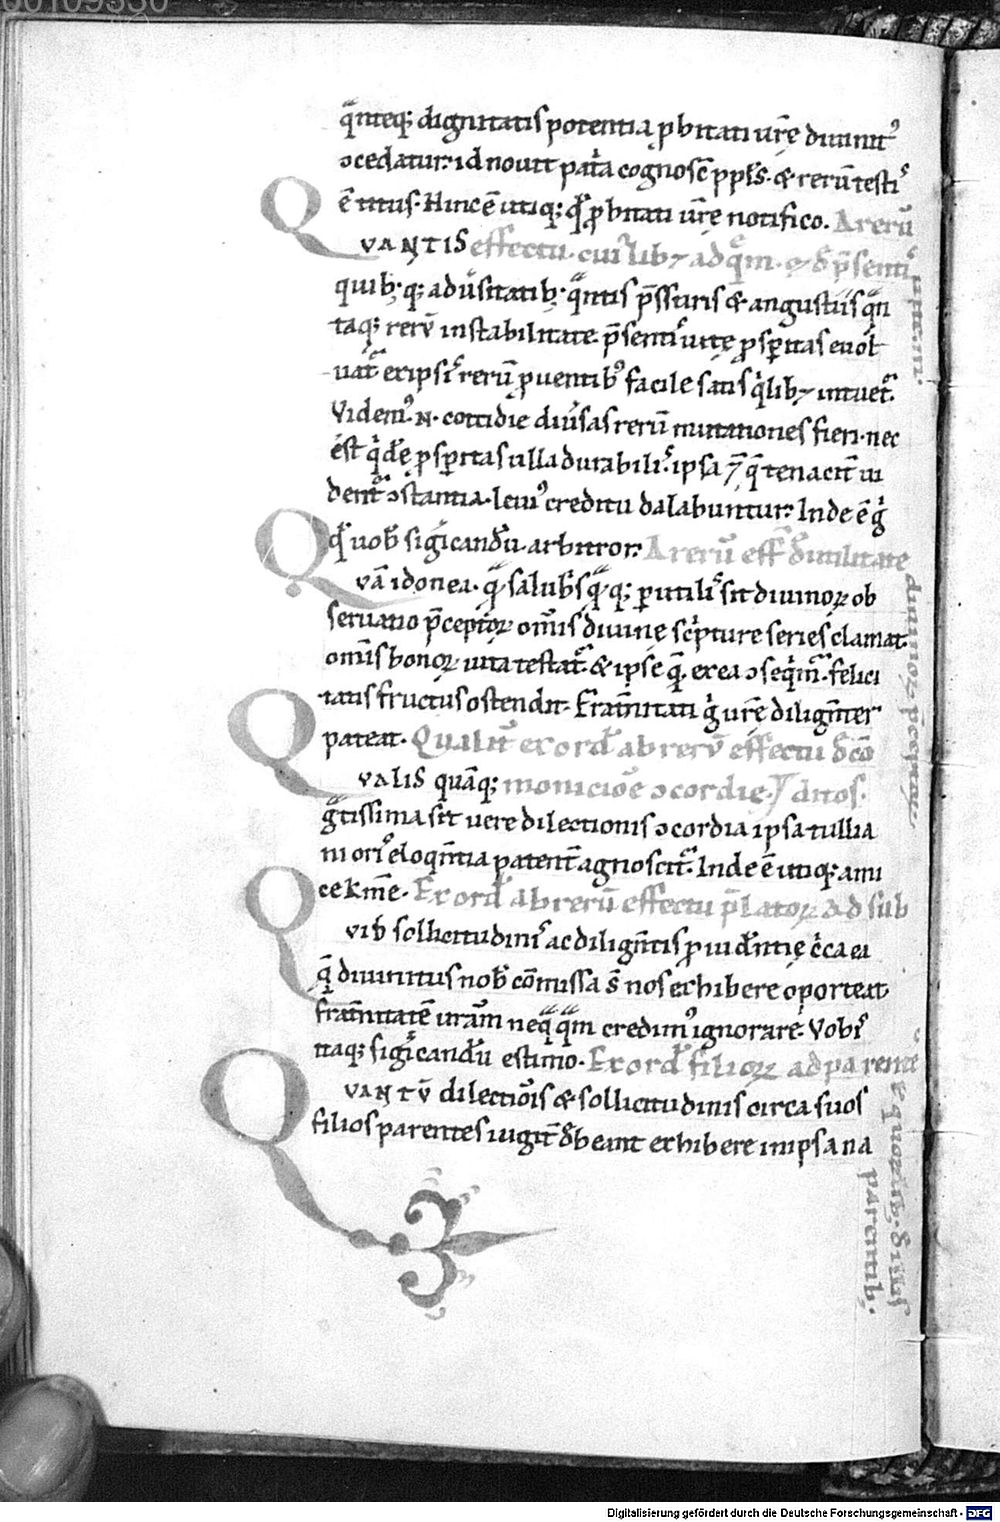 00109330
q̄nteq; dignitatis potentia ꝓbitati ur̄e diuinit᷒
ɔcedatur. id nouit pat̄a cognosc̄ ppl̄s. & rerū testi᷒
ē titus. Hinc ē utiq; qd̄ ꝓbitati ur̄e notifico. A rerū
QVANTIS effectu. cui᷒lib& adq̄m. & d̄ p̄senti᷒
quib; q; aduersitatib; q̄ntis p̄ssuris & angustiis q̄n
taq; rerū instabilitate. p̄senti᷒ uitę ꝓsperitas euol
uat᷑ ex ipsi᷒ rerū ꝓuentib᷒ facile satis q̄lib& intuet᷑.
Videm᷒ .N. cottidie diuersas rerū mutationes fieri. nec
est qd̄ę ꝓsperitas ulla durabili᷒. ipsa
dent᷑ ɔstantia. leui᷒ creditu dalabuntur. Inde ē g̊
qd̄ uob̄ sig̊ican du᷒. arbitror. A rerū eff̄ d̄ utilitate
QVā idonea. q̄ salubris q̄ q; ꝑutili᷒ sit diuinoꝝ ob
seruatio p̄ceptoꝝ om̄is diuinę sc̄pture series clamat.
om̄is bonoꝝ uita testat᷑. & ipse q̄. ex ea ɔseq̄m᷑. felici
tatis fructus ostendit. Frat̄nitati g̊ ur̄e dilign̄ter
pateat. Qualit̄ exord̄ ab rerū effectu d̄ cō
QVALIS quāq; moniciōe ɔcordię
g̊tissima sit uere dilectionis ɔcordia ipsa tullia
ni ori᷒ eloq̄ntia patent̄ agnoscit᷑. Inde ē utiq; ami
ce kme. Exord̄ ab rerū effectu p̄latoꝝ ad sub
QVIB sollicitudini᷒ ac dilign̄tis ꝓuid̄ntię c̄ca ea
q̄ diuinitus nob̄ cōmissa s̄ nos exhibere oporteat
frat̄nitatē uram̄ neq̄q̄m credim᷒ ignorare. Vobi᷒
itaq; sig̊icandu᷒ estimo. Exord̄ filioꝝ ad parente
QVANTV̄ dilectiōis & sollicitudinis circa suos
filios parentes iugit̄ d̄beant exhibere in ipsa na
diuinoꝝ p̄ceptoꝝ
parentib;.
Digitalisierung gefördert durch die Deutsche Forschungsgemeinschaft - DFG